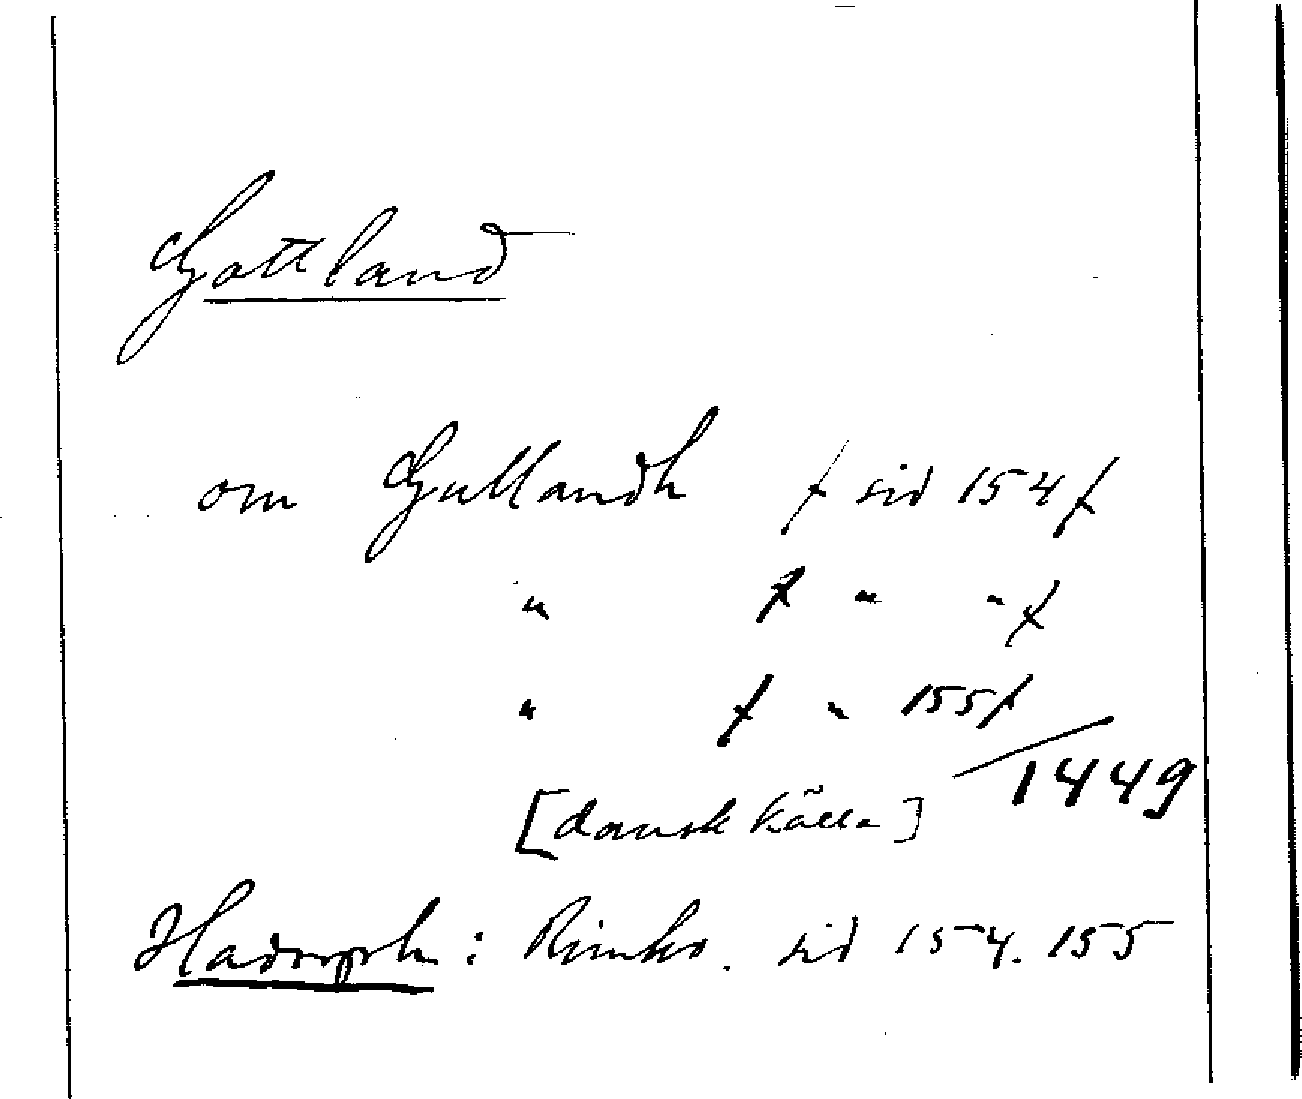 Gottland
om Gullandh / sid 154 /
" / " " /
" / " 155 /
1449
[dansk källa]
Hadorph: Rimkr. sid 154. 155